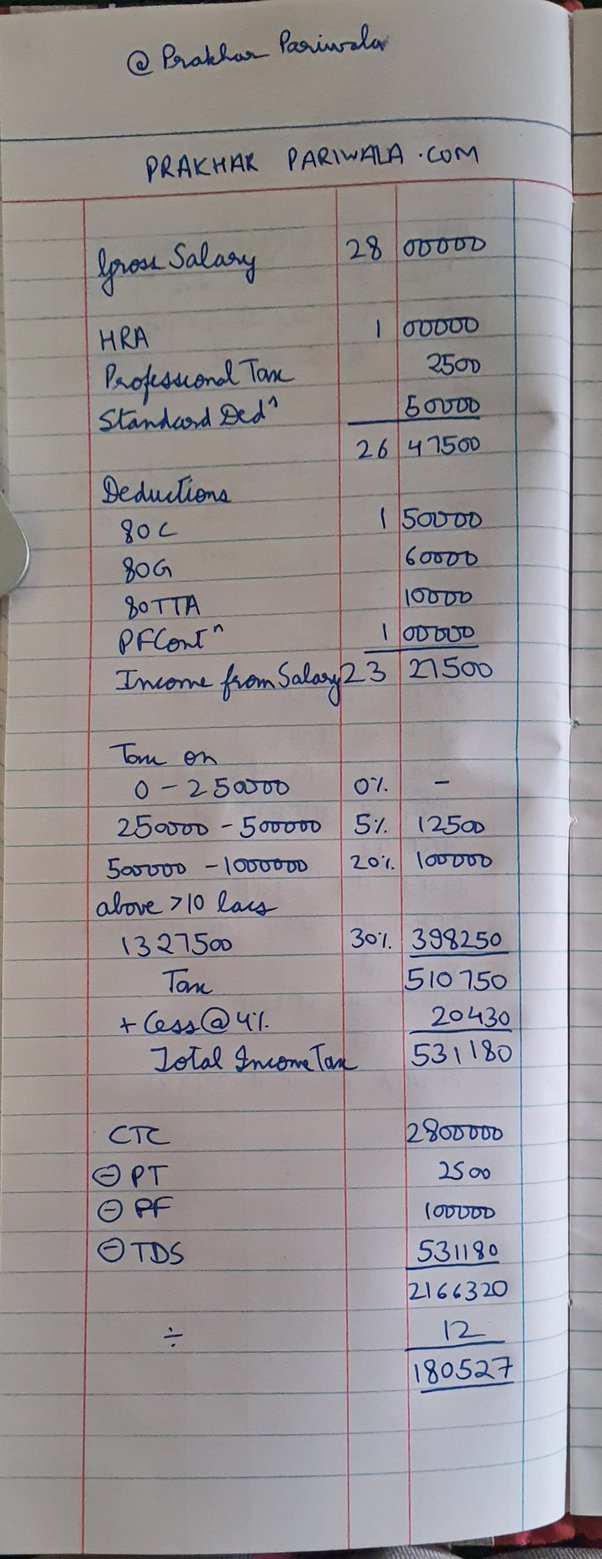 @ Prakhar Pariwala
PRAKHAR PARIWALA.COM
Gross Salary 28 00000
HRA 1 00000
Professional Tax 2500
Standard Ded^n 50000
26 47500
Deductions
80C 1 50000
80G 60000
80TTA 10000
PF Cont^n 1 00000
Income from Salary 23 27500
Tax on
0 - 250000 0% -
250000 - 500000 5% 12500
500000 - 1000000 20% 100000
above >10 lacs
1327500 30% 398250
Tax 510750
+ Cess @ 4% 20430
Total Income Tax 531180
CTC 2800000
⊖ PT 2500
⊖ PF 100000
⊖ TDS 531180
2166320
÷ 12
180527